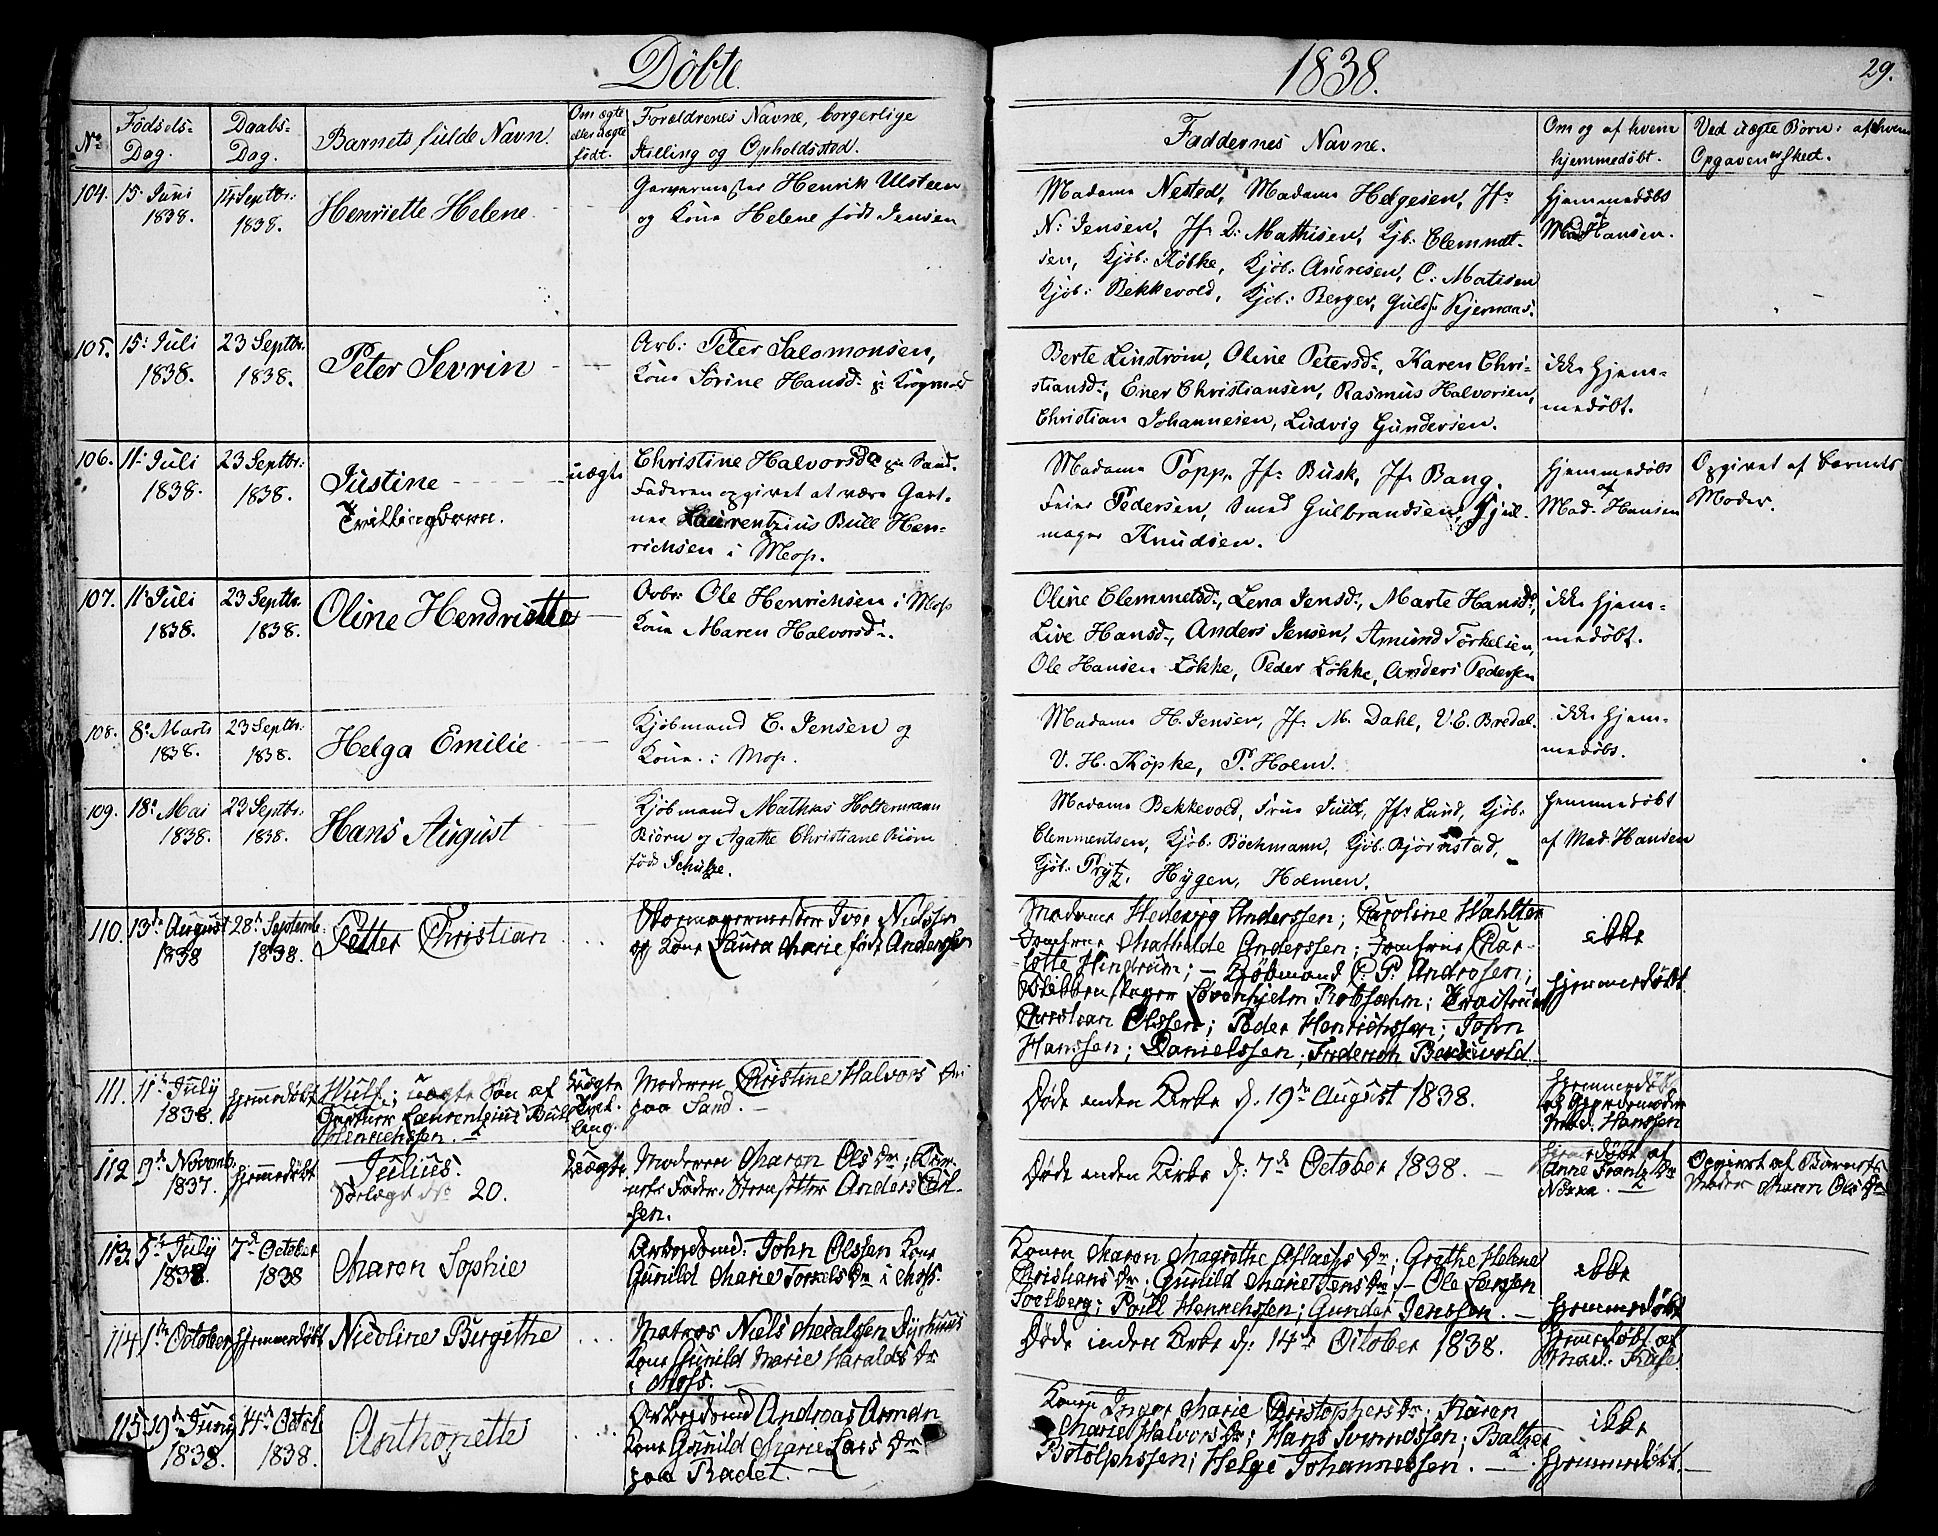 Döbte
1838.
29.
No
Födsels-
Dag.
Daabs-
Dag.
Barnets fulde Navn.
Om ægte
eller uægte
født.
Forældrenes Navne, borgerlige
Stilling og Opholdssted.
Faddernes Navne.
Om og af hvem
hjemmedøbt.
Ved uægte Børn: af hvem
Opgaven er skeet.
104. 15. Juni
1838.
14 Septbr:
1838.
Henriette Helene
Garvermester Henrik Ulsteen
og Kone Helene født Jensen
Madame Nested, Madame Helgesen, Jfr
N: Jensen, Jfr D: Mathisen, Kjb: Clemmet-
sen, Kjöb: Köbke, Kjöb: Andresen, C: Matisen
Kjöb: Bekkevold, Kjöb: Berger, Guld
Hjemmedøbt
af
Mad Hansen.
105. 15. Juli
1838.
23 Septbr.
1838.
Peter Sevrin
Arb: Peter Salomonsen,
Kone Sörine Hansd.
Berte Linström, Oline Petersd., Karen Chri-
stiansd., Ener Christiansen, Rasmus Halvorsen,
Christian Johannesen, Ludvig Gundersen.
ikke Hjem-
medøbt.
106. 11. Juli
1838.
23 Septbr:
1838.
Justine
Tvillingbarn.
uægte
Christine Halvorsda paa Sand.
Faderen opgivet at være Gart-
ner Laurentzius Bull Hen-
richsen i Moss.
Madame Popp, Jfr Busk, Jfr Bang.
Feier Pedersen, Smed Gulbrandsen, Hjul-
mager Knudsen.
Hjemmedøbt
af
Mad. Hansen
Opgivet af Barnets
Moder.
107. 11. Juli
1838.
23 Septbr.
1838.
Oline Hendriette
Arbr: Ole Henrichsen i Moss
Kone Maren Halvorsd.
Oline Clemmetsd., Lena Jensd., Marte Hansd.,
Live Hansd., Anders Jensen, Amund Torkelsen,
Ole Hansen Løkke, Peder Løkke, Anders Pedersen
ikke Hjem-
medøbt.
108. 8. Marts
1838.
23 Septbr:
1838.
Helga Emilie
Kjöbmand C. Jensen og
Kone i Moss.
Madame H. Jensen, Jfr M. Dahl, V. E. Bredal.
V. H. Köpke, P. Holm.
ikke Hjem-
medøbt.
109. 18. Mai
1838.
23 Septbr:
1838.
Hans August
Kjöbmand Mathias Holtermann
Biörn og Agathe Christiane Biörn
født Schulze.
Madame Bekkevold, Frue Juul, Jfr Lund, Kjöb:
Clemmentsen, Kjöb: Böchmann, Kjöb: Bjørnstad,
Kjöb: Prytz, Hygen, Holmen.
Hemmedøbt
af Mad. Hansen
110. 13de August
1838
28de Septemb:
1838.
Petter Christian
Skomagermester Iver Nielssen
og Kone Laura Marie født Anderssen
Madame Hedevig Anderssen; Caroline Wahlter
Jomfrue Mathilde Anderssen; Jomfrue Char-
lotte Hindrum; - Kjøbmand C. P. Androssen;
Blikkenslager Svenhjelm Robsahm;
Christian Olssen; Peder Henrichssen; John
Hanssen; Danielssen, Frederich Bekkevold.
ikke
hjemmedøbt.
111. 11te July
1838.
hjemmedøbt
Wulf; uægte Søn af
Gartner Laurentzius Bull
Henrichssen.
Uægte
Tvil-
ling.
Moderen Christine Halvors Dr
paa Sand.
Døde uden Kirke d. 19de August 1838.
Hjemmedøbt
af Gjordemoder
Mad. Hanssen
112 9de Novemb.
1837.
hjemmedøbt
Julius.
20.
Uægte
Moderen Maren Ols Dr; Bar-
nets Fader: Anders Carl-
sen.
Døde uden Kirke d: 7de October 1838.
Hjemmedøbt af
Anne Frantz Dr
Opgivet af Barnets
Moder Maren Ols Dr
113. 5te July
1838.
7de October
1838
Maren Sophie
Arbejdsmd. John Olssen Kone
Gunild Marie Torkels Dr i Moss.
Konen Maren Magrethe Aslachs Dr; Grethe Helene
Christians Dr; Gunild Marie Jens Dr; - Ole Larssen
Soelberg; Poull Henrichssen; Gunder Jenssen.
ikke
hjemmedøbt
114 1ste October
hjemmedøbt
Nicoline Birgithe
Matros Niels Michalssen Dyrhuus
Kone Gunild Marie Haralds Dr
i Moss.
Døde uden Kirke d: 14de October 1838.
Hjemmedøbt af
115. 19de Juny
1838.
14de Octob.
1838.
Anthonette
Arbejdsmd Andreas Arman
Kone Gunild Marie Lars Dr
paa Radet.
Konen Inger Marie Christophers Dr; Karen
Marie Halvors Dr; Hans Svendssen; Baltzer
Botolphssen; Helge Johannessen.
ikke
hjemmedøbt.